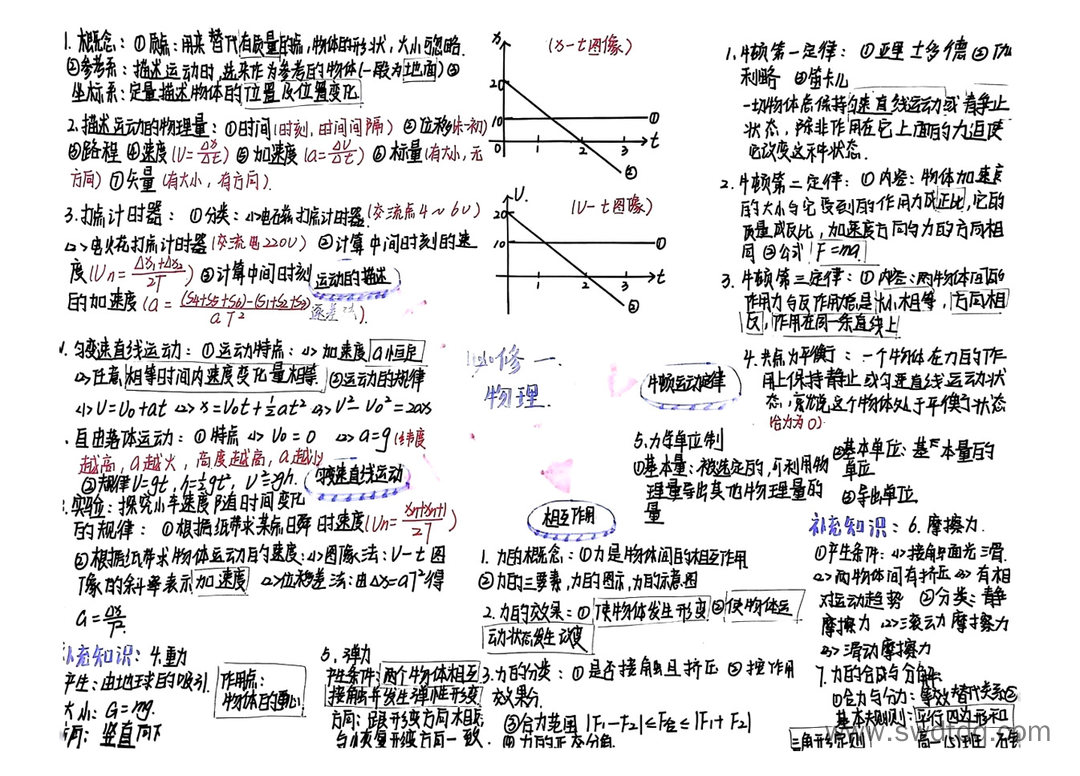 1. 概念：①质点：用来替代有质量的点，物体的形状，大小可忽略.
②参考系：描述运动时，选来作为参考的物体(一般为地面)③
坐标系：定量描述物体的位置及位置变化
2. 描述运动的物理量：①时间(时刻，时间间隔) ②位移(末-初)
③路程 ④速度(V=Δx/Δt) ⑤加速度(a=ΔV/Δt) ⑥标量(有大小，无
方向) ⑦矢量(有大小，有方向).
3. 打点计时器：①分类：<1>电磁打点计时器(交流点4~6V)
<2>电火花打点计时器(交流电220V) ②计算中间时刻的速
度(Vn=(Δx1+Δx2)/2T) ③计算中间时刻
的加速度(a=((S4+S5+S6)-(S1+S2+S3))/aT² 逐差法).
运动的描述
匀变速直线运动：①运动特点：<1>加速度a恒定
<2>任意相等时间内速度变化量相等 ②运动的规律
<1>V=V0+at <2>x=V0t+½at² <3>V²-V0²=2ax
自由落体运动：①特点<1>V0=0 <2>a=g(纬度
越高，a越大，高度越高，a越小)
②规律V=gt，h=½gt²，V²=2gh.
匀变速直线运动
实验：探究小车速度随时间变化
的规律：①根据纸带求某点日舜时速度(Vn=(xn+xn+1)/2T)
②根据纸带求物体运动的速度：<1>图像法：V-t图
像的斜率表示加速度 <2>位移差法：由Δx=aT²得
a=Δx/T².
补充知识：4.重力
产生：由地球的吸引.
大小：G=mg.
方向：竖直向下
作用点：
物体的重心
5. 弹力
产生条件：两个物体相互
接触并发生弹性形变
方向：与形变方向相反
x
(x-t图像)
20
10
0
1
2
3
t
①
②
V
(V-t图像)
20
10
1
2
3
t
①
②
必修一
物理
相互作用
1. 力的概念：①力是物体间的相互作用
②力的三要素，力的图示，力的示意图
2. 力的效果：①使物体发生形变②使物体运
动状态发生改变
3. 力的分类：①是否接触且挤压 ②按作用
效果分.
③合力范围 |F1-F2|≤F合≤|F1+F2|
④力的正交分解.
1. 牛顿第一定律：①亚里士多德②伽
利略 ③笛卡儿
一切物体总保持匀速直线运动或者静止
状态，除非作用在它上面的力迫使
它改变这种状态.
2. 牛顿第二定律：①内容：物体加速度
的大小与它受到的作用力成正比，它的
质量成反比，加速度方向与力的方向相
同 ②公式F=ma
3. 牛顿第三定律：①内容：两物体间的
作用力与反作用总是大小相等，方向相
反，作用在同一条直线上
牛顿运动定律
4. 共点力平衡：一个物体在力的作
用上保持静止或匀速直线运动状
态，就说这个物体处于平衡状态
(合力为0)
5. 力学单位制
①基本量：被选定的，可利用物
理量导出其他物理量的
量
②基本单位：基本量的
单位
③导出单位.
补充知识：6. 摩擦力.
①产生条件：<1>接触面光滑.
<2>两物体间有挤压<3>有相
对运动趋势 ②分类：静
摩擦力 <2>滚动摩擦力
<3>滑动摩擦力
7. 力的合成与分解
①合力与分力：等效替代关系②
基本规则：平行四边形和
三角形定则
www.swdtdq.com